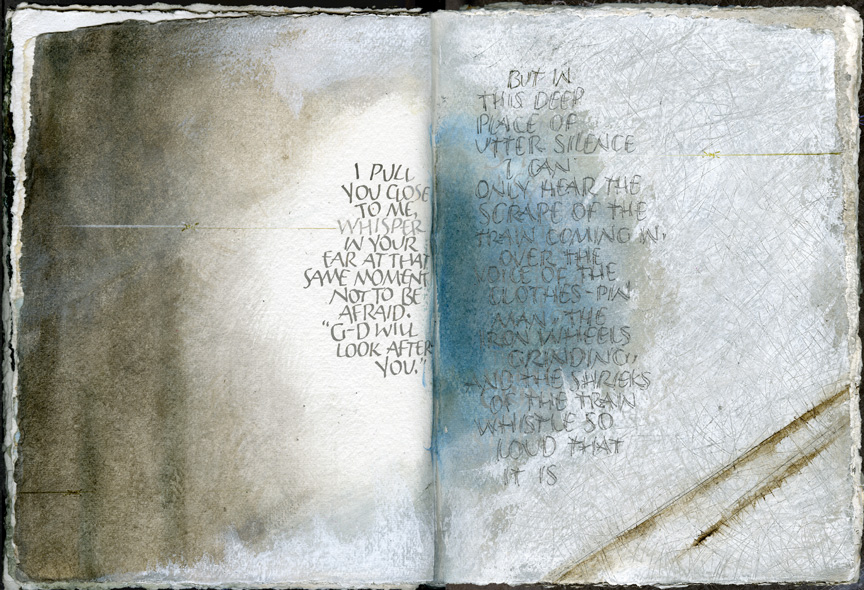 I PULL
YOU CLOSE
TO ME,
WHISPER
IN YOUR
EAR AT THAT
SAME MOMENT
NOT TO BE
AFRAID.
"G-D WILL
LOOK AFTER
YOU."
BUT IN
THIS DEEP
PLACE OF
UTTER SILENCE
I CAN
ONLY HEAR THE
SCRAPE OF THE
TRAIN COMING IN,
OVER THE
VOICE OF THE
CLOTHES-PIN
MAN, THE
IRON WHEELS
GRINDING,
AND THE SHRIEKS
OF THE TRAIN
WHISTLE SO
LOUD THAT
IT IS